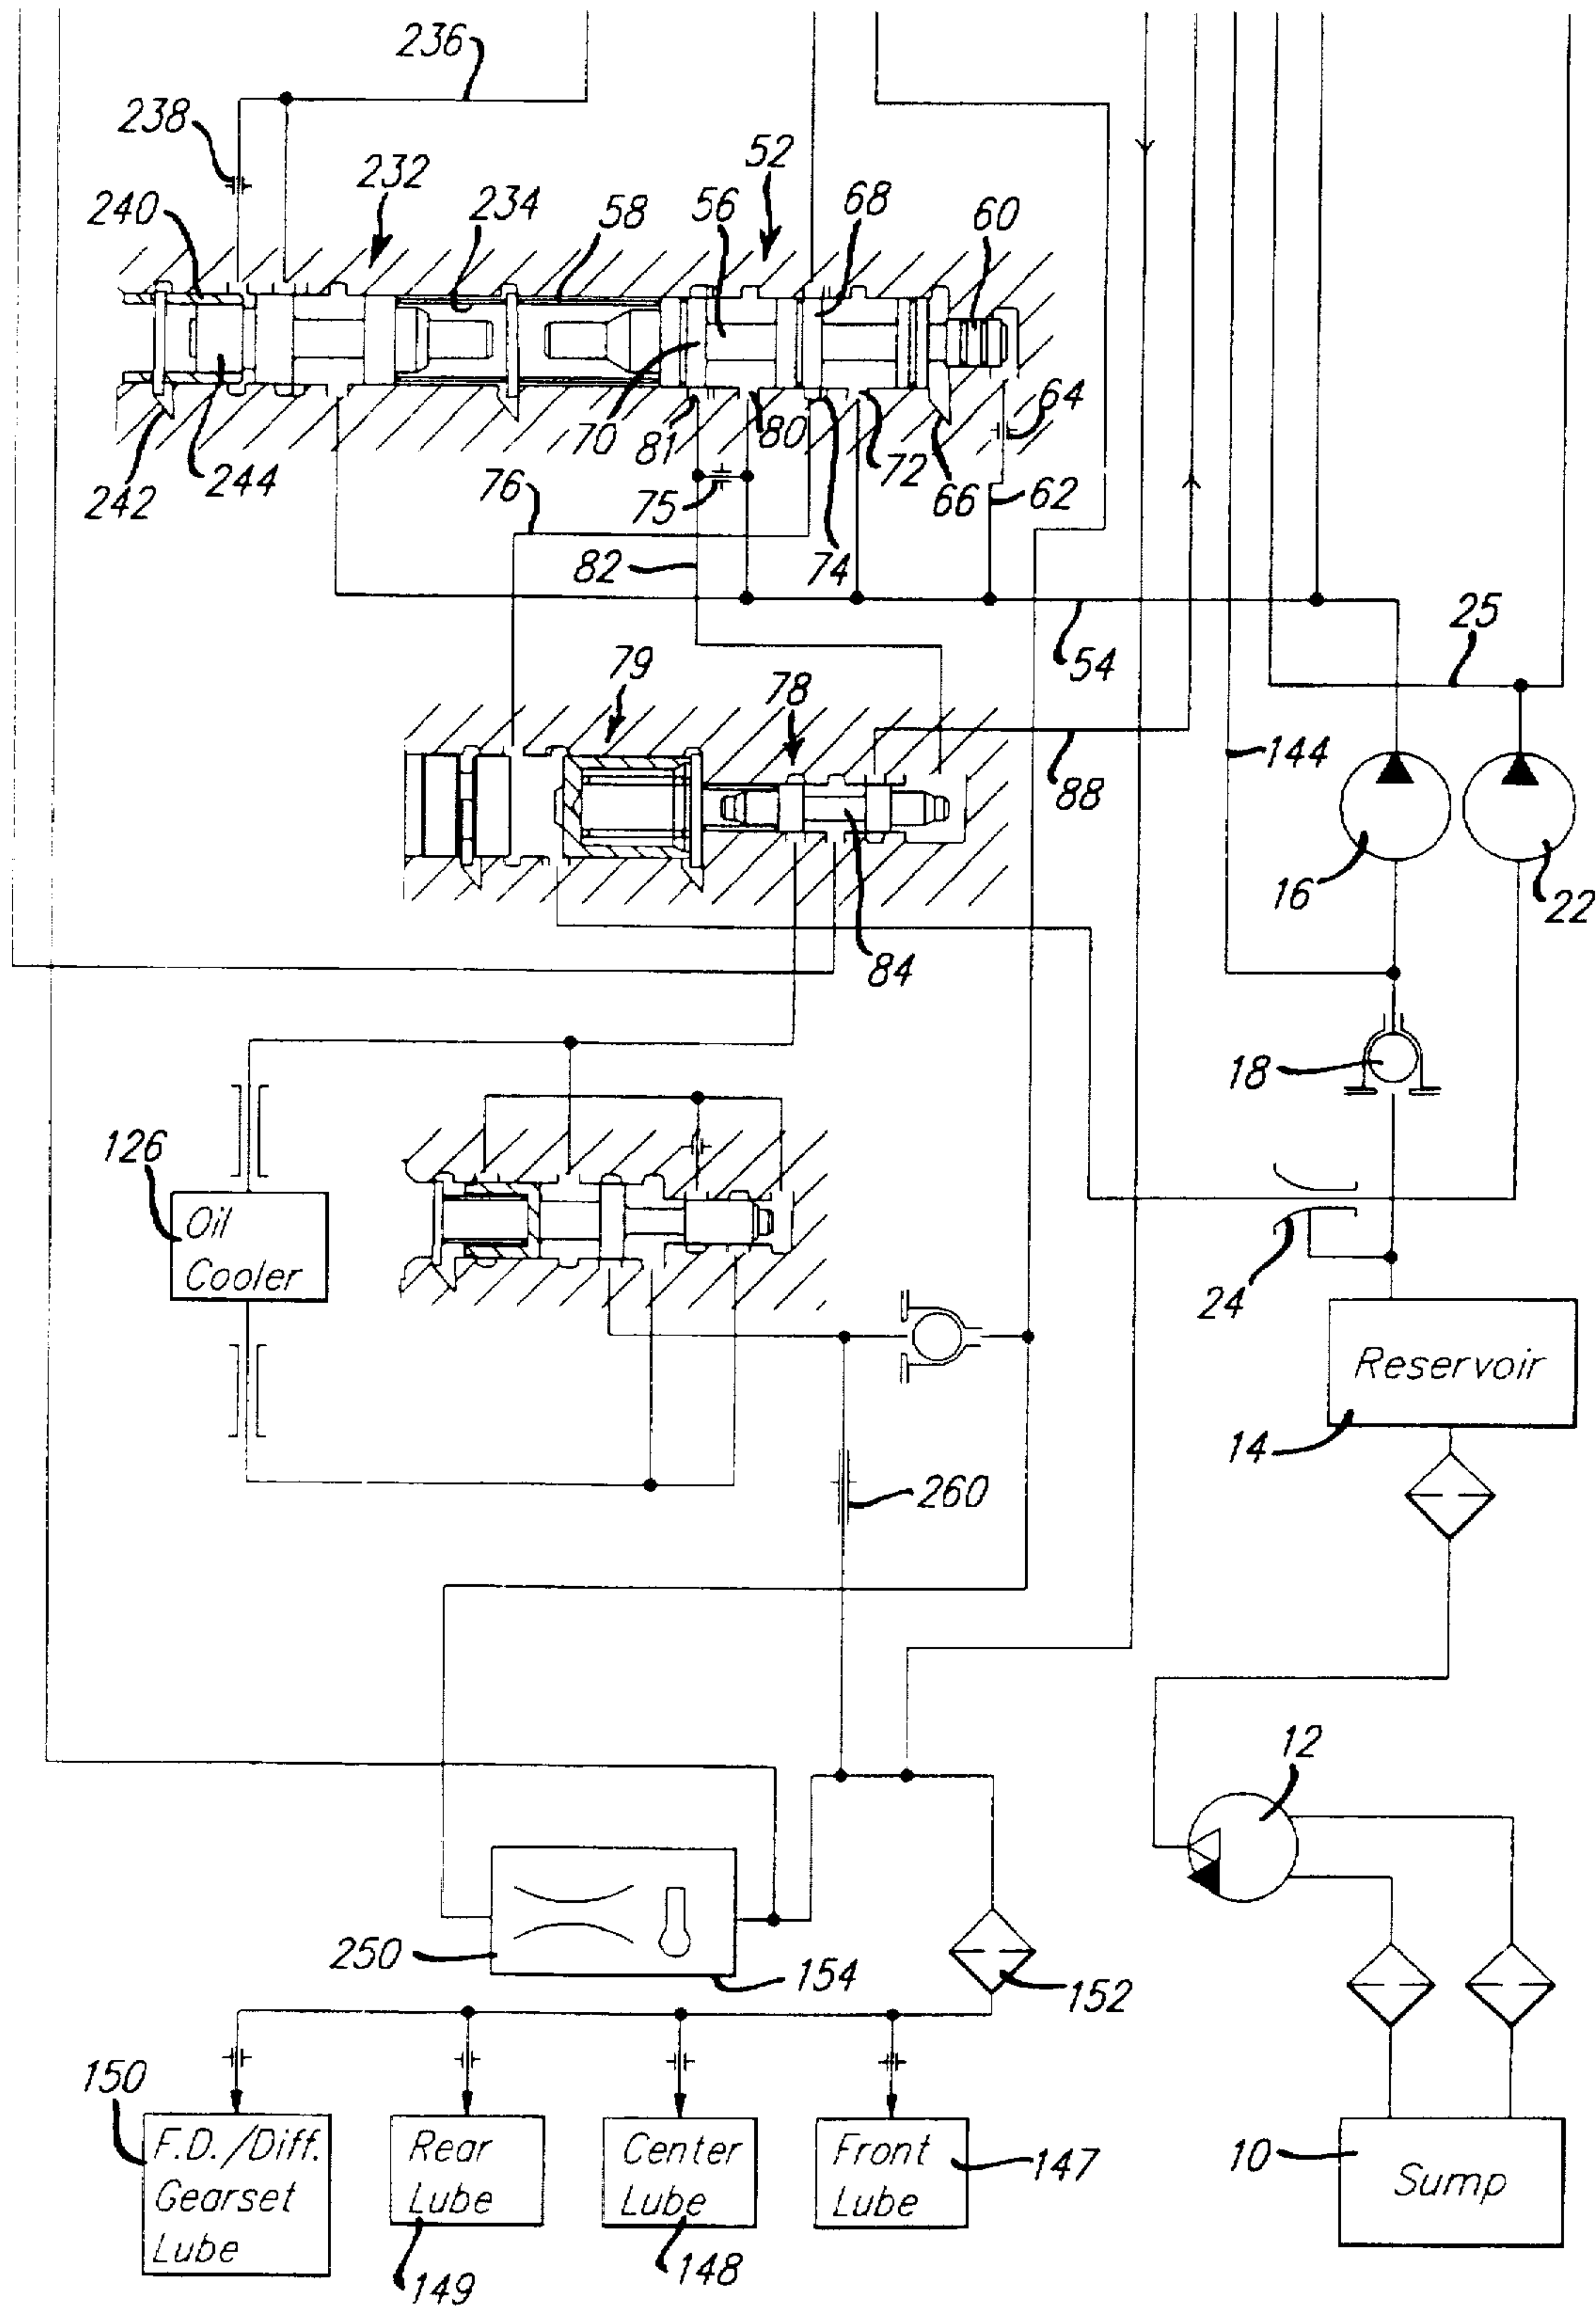 236
238
52
232
240
234
58
56
68
60
64
70
81
80
72
244
242
76
75
66
62
82
74
25
54
79
78
144
88
16
22
84
18
126
Oil
Cooler
24
Reservoir
14
260
12
250
154
152
150
F.D./Diff.
Gearset
Lube
Rear
Lube
149
Center
Lube
148
Front
Lube
147
10
Sump